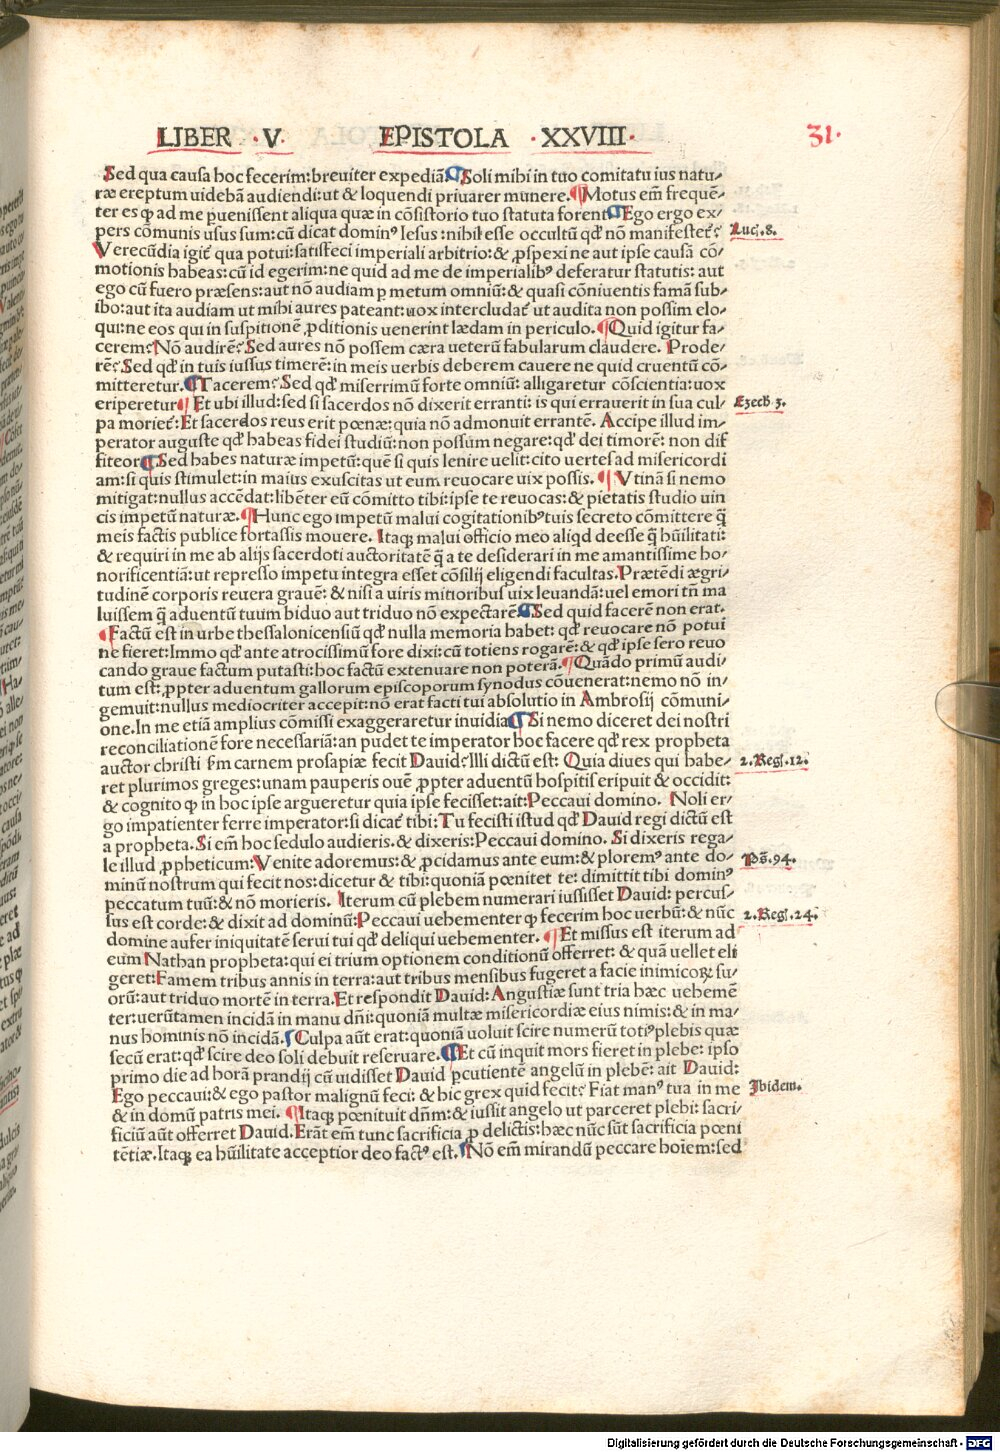 LIBER ·V· EPISTOLA ·XXVIII· 31·
Sed qua causa hoc fecerim: breuiter expediã. ¶Soli mihi in tuo comitatu ius natu/
ræ ereptum uidebã audiendi: ut & loquendi priuarer munere. ¶Motus em̃ frequẽ/
ter es ꝙ ad me ꝑuenissent aliqua quæ in cõsistorio tuo statuta forent ¶Ego ergo ex/
pers cõmunis usus sum: cũ dicat dominꝰ Iesus: nihil esse occultũ qđ nõ manifestet̃?
Luc̃. 8.
Verecũdia igit̃ qua potui: satisfeci imperiali arbitrio: & ꝓspexi ne aut ipse causã cõ/
motionis habeas: cũ id egerim: ne quid ad me de imperialibꝰ deferatur statutis: aut
ego cũ fuero præsens: aut nõ audiam ꝑ metum omniũ: & quasi cõniuentis famã sub/
ibo: aut ita audiam ut mihi aures pateant: uox intercludat̃ ut audita non possim elo/
qui: ne eos qui in suspitionẽ ꝓditionis uenerint lædam in periculo. ¶Quid igitur fa/
cerem? Nõ audirẽ? Sed aures nõ possem cæra ueterũ fabularum claudere. Prode/
rẽ? Sed qđ in tuis iussus timerẽ: in meis uerbis deberem cauere ne quid cruentũ cõ/
mitteretur. ¶Tacerem? Sed qđ miserrimũ forte omniũ: alligaretur cõscientia: uox
eriperetur ¶Et ubi illud: sed si sacerdos nõ dixerit erranti: is qui errauerit in sua cul/
Ezech 3.
pa moriet̃: Et sacerdos reus erit pœnæ: quia nõ admonuit errantẽ. Accipe illud im/
perator auguste qđ habeas fidei studiũ: non possum negare: qđ dei timorẽ: non dif
fiteor ¶Sed habes naturæ impetũ: quẽ si quis lenire uelit: cito uertes ad misericordi
am: si quis stimulet: in maius exuscitas ut eum reuocare uix possis. ¶Vtinã si nemo
mitigat: nullus accẽdat: libẽter eũ cõmitto tibi: ipse te reuocas: & pietatis studio uin
cis impetũ naturæ. ¶Hunc ego impetũ malui cogitationibꝰ tuis secreto cõmittere q̃
meis factis publice fortassis mouere. Itaqꝫ malui officio meo aliqđ deesse q̃ hũilitati:
& requiri in me ab alijs sacerdoti auctoritatẽ q̃ a te desiderari in me amantissime ho/
norificentiã: ut represso impetu integra esset cõsilij eligendi facultas. Prætẽdi ægri/
tudinẽ corporis reuera grauẽ: & nisi a uiris mitioribus uix leuandã: uel emori tñ ma
luissem q̃ aduentũ tuum biduo aut triduo nõ expectarẽ ¶Sed quid facerẽ non erat.
¶Factũ est in urbe thessalonicensiũ qđ nulla memoria habet: qđ reuocare nõ potui
ne fieret: Immo qđ ante atrocissimũ fore dixi: cũ totiens rogarẽ: & qđ ipse sero reuo
cando graue factum putasti: hoc factũ extenuare non poterã. ¶Quãdo primũ audi/
tum est: ꝓpter aduentum gallorum episcoporum synodus cõuenerat: nemo nõ in/
gemuit: nullus mediocriter accepit: nõ erat facti tui absolutio in Ambrosij cõmuni/
one. In me etiã amplius cõmissi exaggeraretur inuidia ¶Si nemo diceret dei nostri
reconciliationẽ fore necessariã: an pudet te imperator hoc facere qđ rex propheta
auctor christi s̃m carnem prosapiæ fecit Dauid? Illi dictũ est: Quia diues qui habe/
2. Reg̃. 12.
ret plurimos greges: unam pauperis ouẽ ꝓpter aduentũ hospitis eripuit & occidit:
& cognito ꝙ in hoc ipse argueretur quia ipse fecisset: ait: Peccaui domino. Noli er/
go impatienter ferre imperator: si dicat̃ tibi: Tu fecisti istud qđ Dauid regi dictũ est
a propheta. Si em̃ hoc sedulo audieris. & dixeris: Peccaui domino. Si dixeris rega/
le illud ꝓpheticum: Venite adoremus: & ꝓcidamus ante eum: & ploremꝰ ante do/
Ps̃. 94.
minũ nostrum qui fecit nos: dicetur & tibi: quoniã pœnitet te: dimittit tibi dominꝰ
peccatum tuũ: & nõ morieris. Iterum cũ plebem numerari iussisset Dauid: percus/
sus est corde: & dixit ad dominũ: Peccaui uehementer ꝙ fecerim hoc uerbũ: & nũc
2. Reg̃. 24.
domine aufer iniquitatẽ serui tui qđ deliqui uehementer. ¶Et missus est iterum ad
eum Nathan propheta: qui ei trium optionem conditionũ offerret: & quã uellet eli
geret: Famem tribus annis in terra: aut tribus mensibus fugeret a facie inimicoꝝ su/
orũ: aut triduo mortẽ in terra. Et respondit Dauid: Angustiæ sunt tria hæc uehemẽ
ter: uerũtamen incidã in manu dñi: quoniã multæ misericordiæ eius nimis: & in ma/
nus hominis nõ incidã. ¶Culpa aũt erat: quoniã uoluit scire numerũ totiꝰ plebis quæ
secũ erat: qđ scire deo soli debuit reseruare. ¶Et cũ inquit mors fieret in plebe: ipso
primo die ad horã prandij cũ uidisset Dauid ꝑcutientẽ angelũ in plebẽ: ait Dauid:
Ego peccaui: & ego pastor malignũ feci: & hic grex quid fecit? Fiat manꝰ tua in me
Ibidem.
& in domũ patris mei. ¶Itaqꝫ pœnituit dñm: & iussit angelo ut parceret plebi: sacri/
ficiũ aũt offerret Dauid. Erãt em̃ tunc sacrificia ꝓ delictis: hæc nũc sũt sacrificia pœni
tẽtiæ. Itaqꝫ ea hũilitate acceptior deo factꝰ est. ¶Nõ em̃ mirandũ peccare hoiem: sed
Digitalisierung gefördert durch die Deutsche Forschungsgemeinschaft - DFG